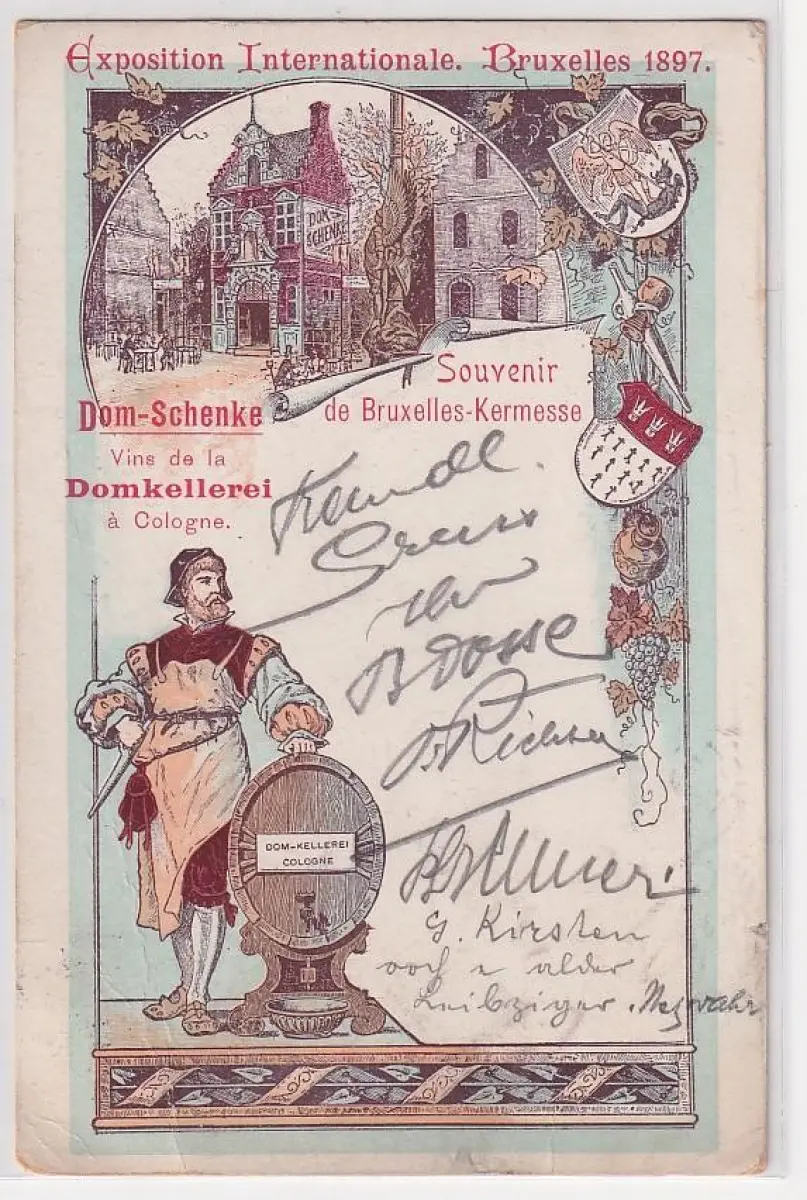 Exposition Internationale. Bruxelles 1897.
DOM-
SCHENKE
Souvenir
de Bruxelles-Kermesse
Dom-Schenke
Vins de la
Domkellerei
à Cologne.
Gruss
DOM-KELLEREI
COLOGNE
G. Kirsten
ooch e alder
Leibziger